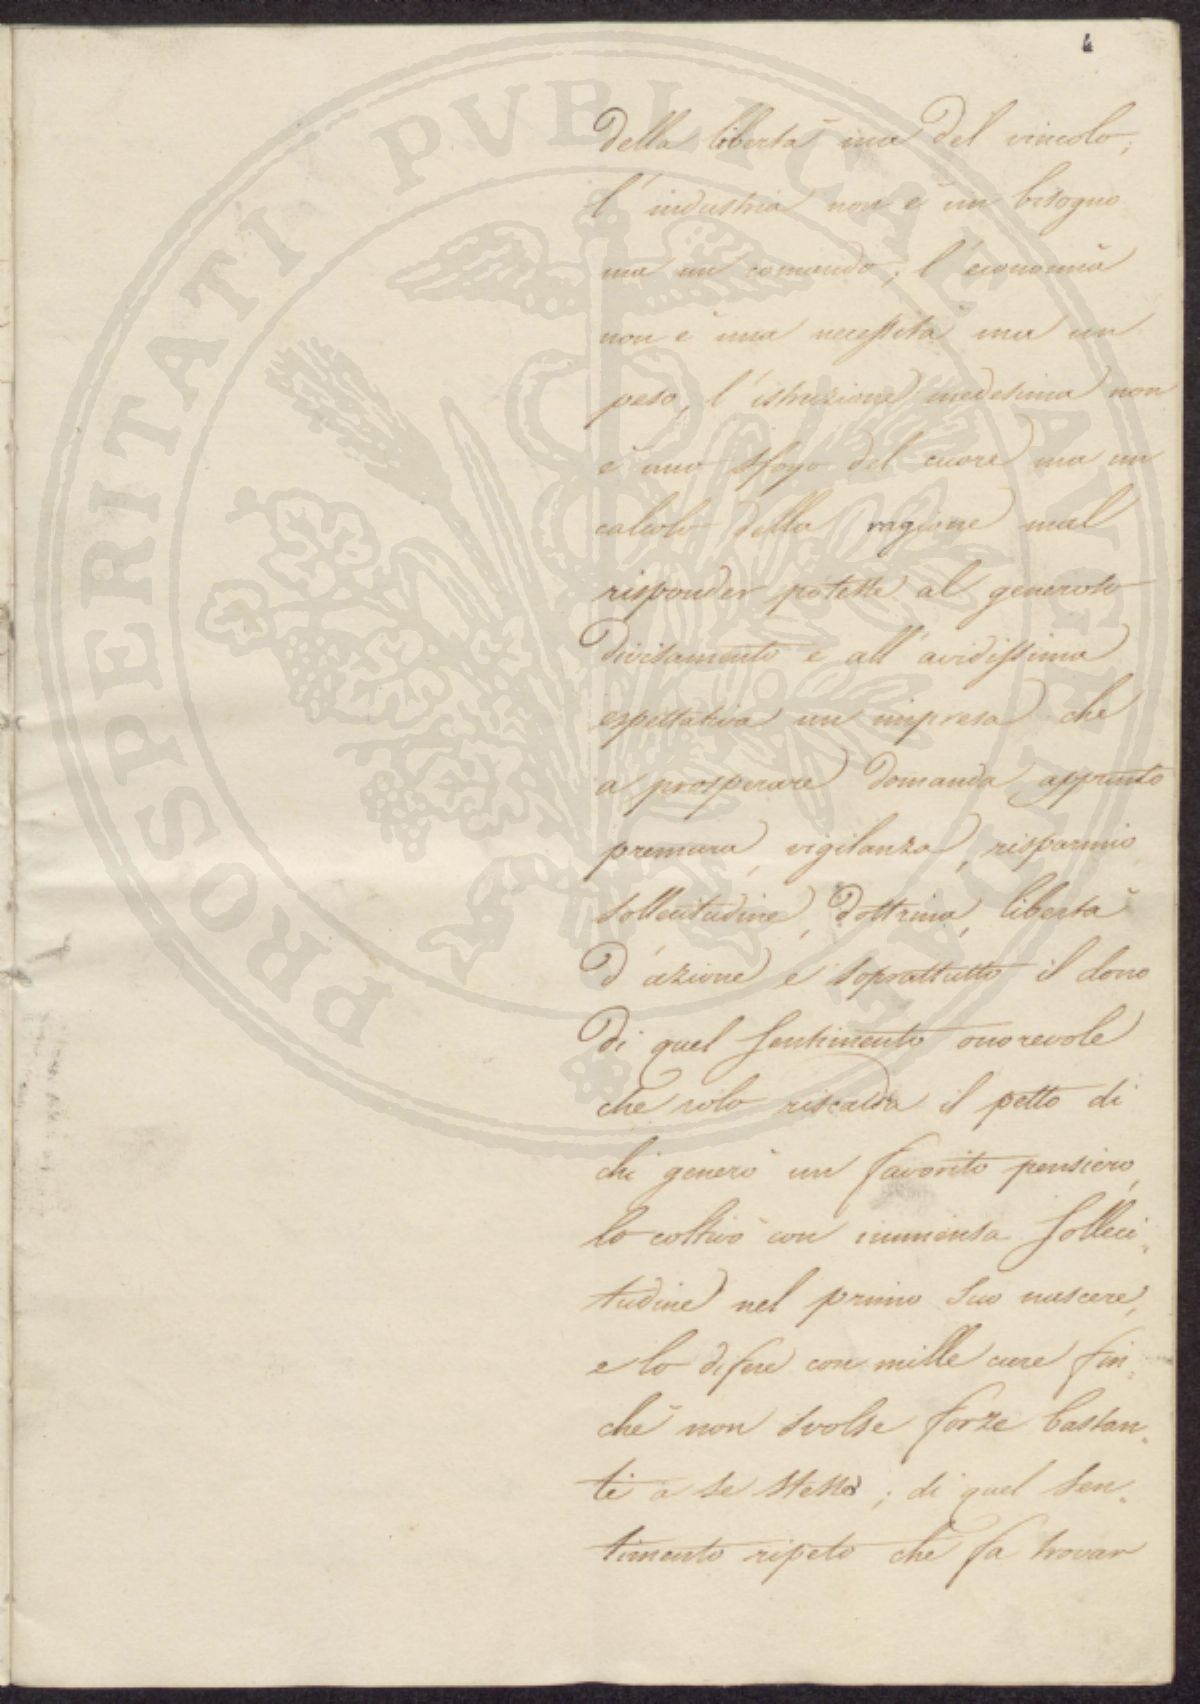 4
della libertà ma del vincolo;
l'industria non è un bisogno
ma un comando; l'economia
non è una necessità ma un
peso, l'istruzione medesima non
è uno sfogo del cuore ma un
calcolo della ragione mal
risponder potesse al generoso
divisamento e all'avidissima
espettativa un impresa che
a prosperare domanda appunto
premura, vigilanza, risparmio,
sollecitudine, dottrina, libertà
d'azione e soprattutto il dono
di quel sentimento onorevole
che solo riscalda il petto di
chi generò un favorito pensiero,
lo coltivò con immensa solleci-
tudine nel primo suo nascere,
e lo difese con mille cure fin-
chè non svolse forze bastan-
ti a se stesso; di quel sen-
timento ripeto che fa trovar
PROSPERITATI PVBLICAE AVGENDAE